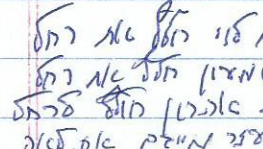 לוי חולץ את רחל
שמעון חולץ את רחל
אהרון חולץ לרחל
מייבם את לאה